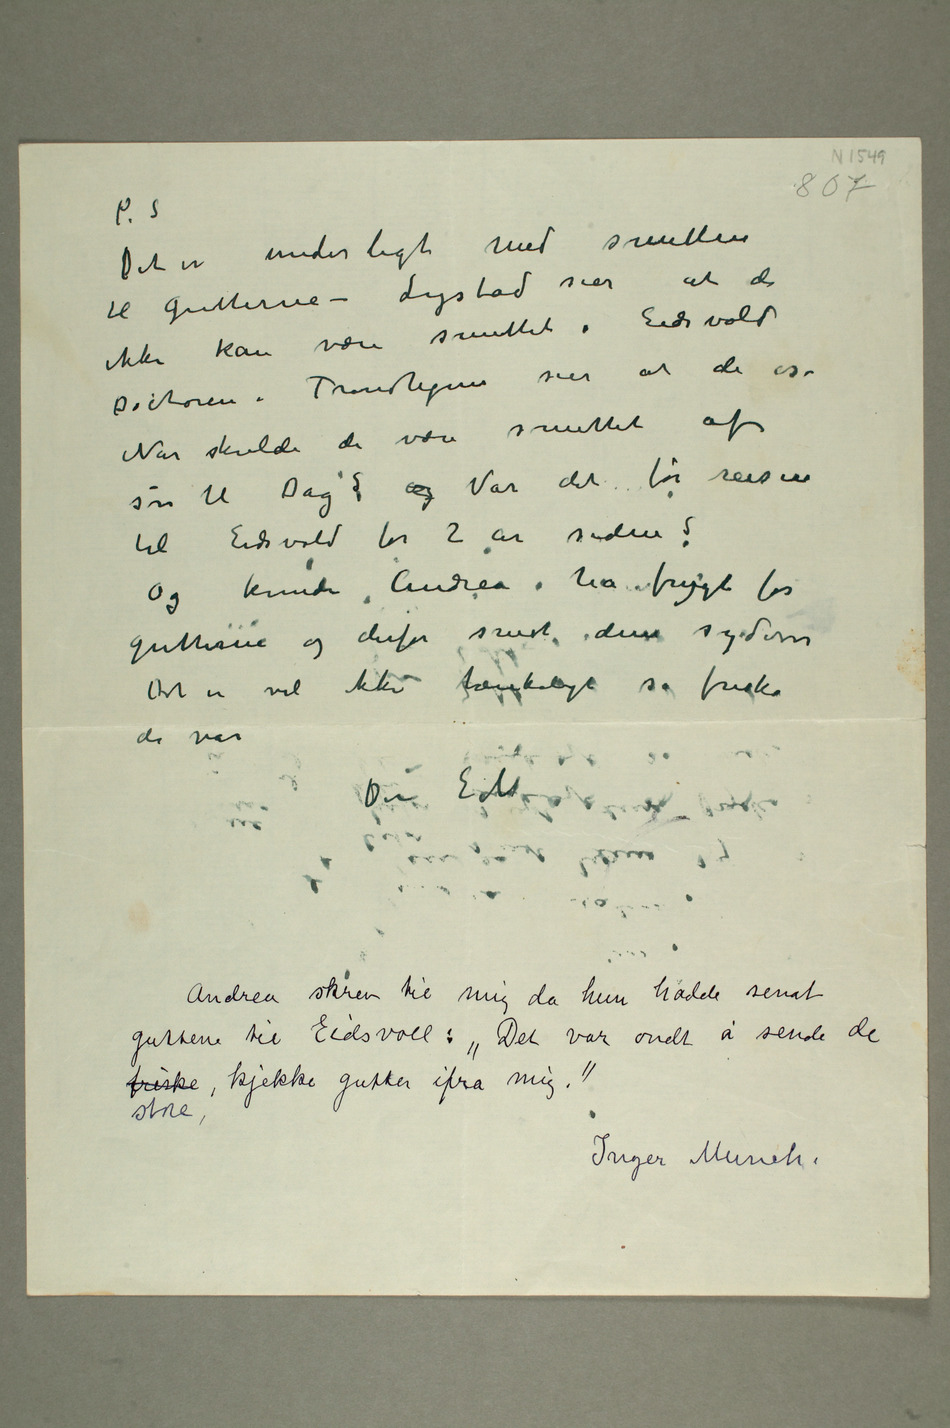 N 1549
807
P. S
Det er underligt med smitten
til gutterne – Lystad sier at de
ikke kan være smittet i Eidsvold
Doctoren i Trondhjem sier at de
Når skulde de være smittet af
til Dag? og Var det før reisen
til Eidsvold for 2 år siden?
Og kunde Andrea ha frygt for
gutterne og derfor sendt dem sydover
Det er vel ikke tænkeligt så friske
de var
Din Edv
Andrea skrev til mig da hun hadde sendt
guttene til Eidsvoll: „Det var ondt å sende de
friske, kjekke gutter ifra mig."
store,
Inger Munch.